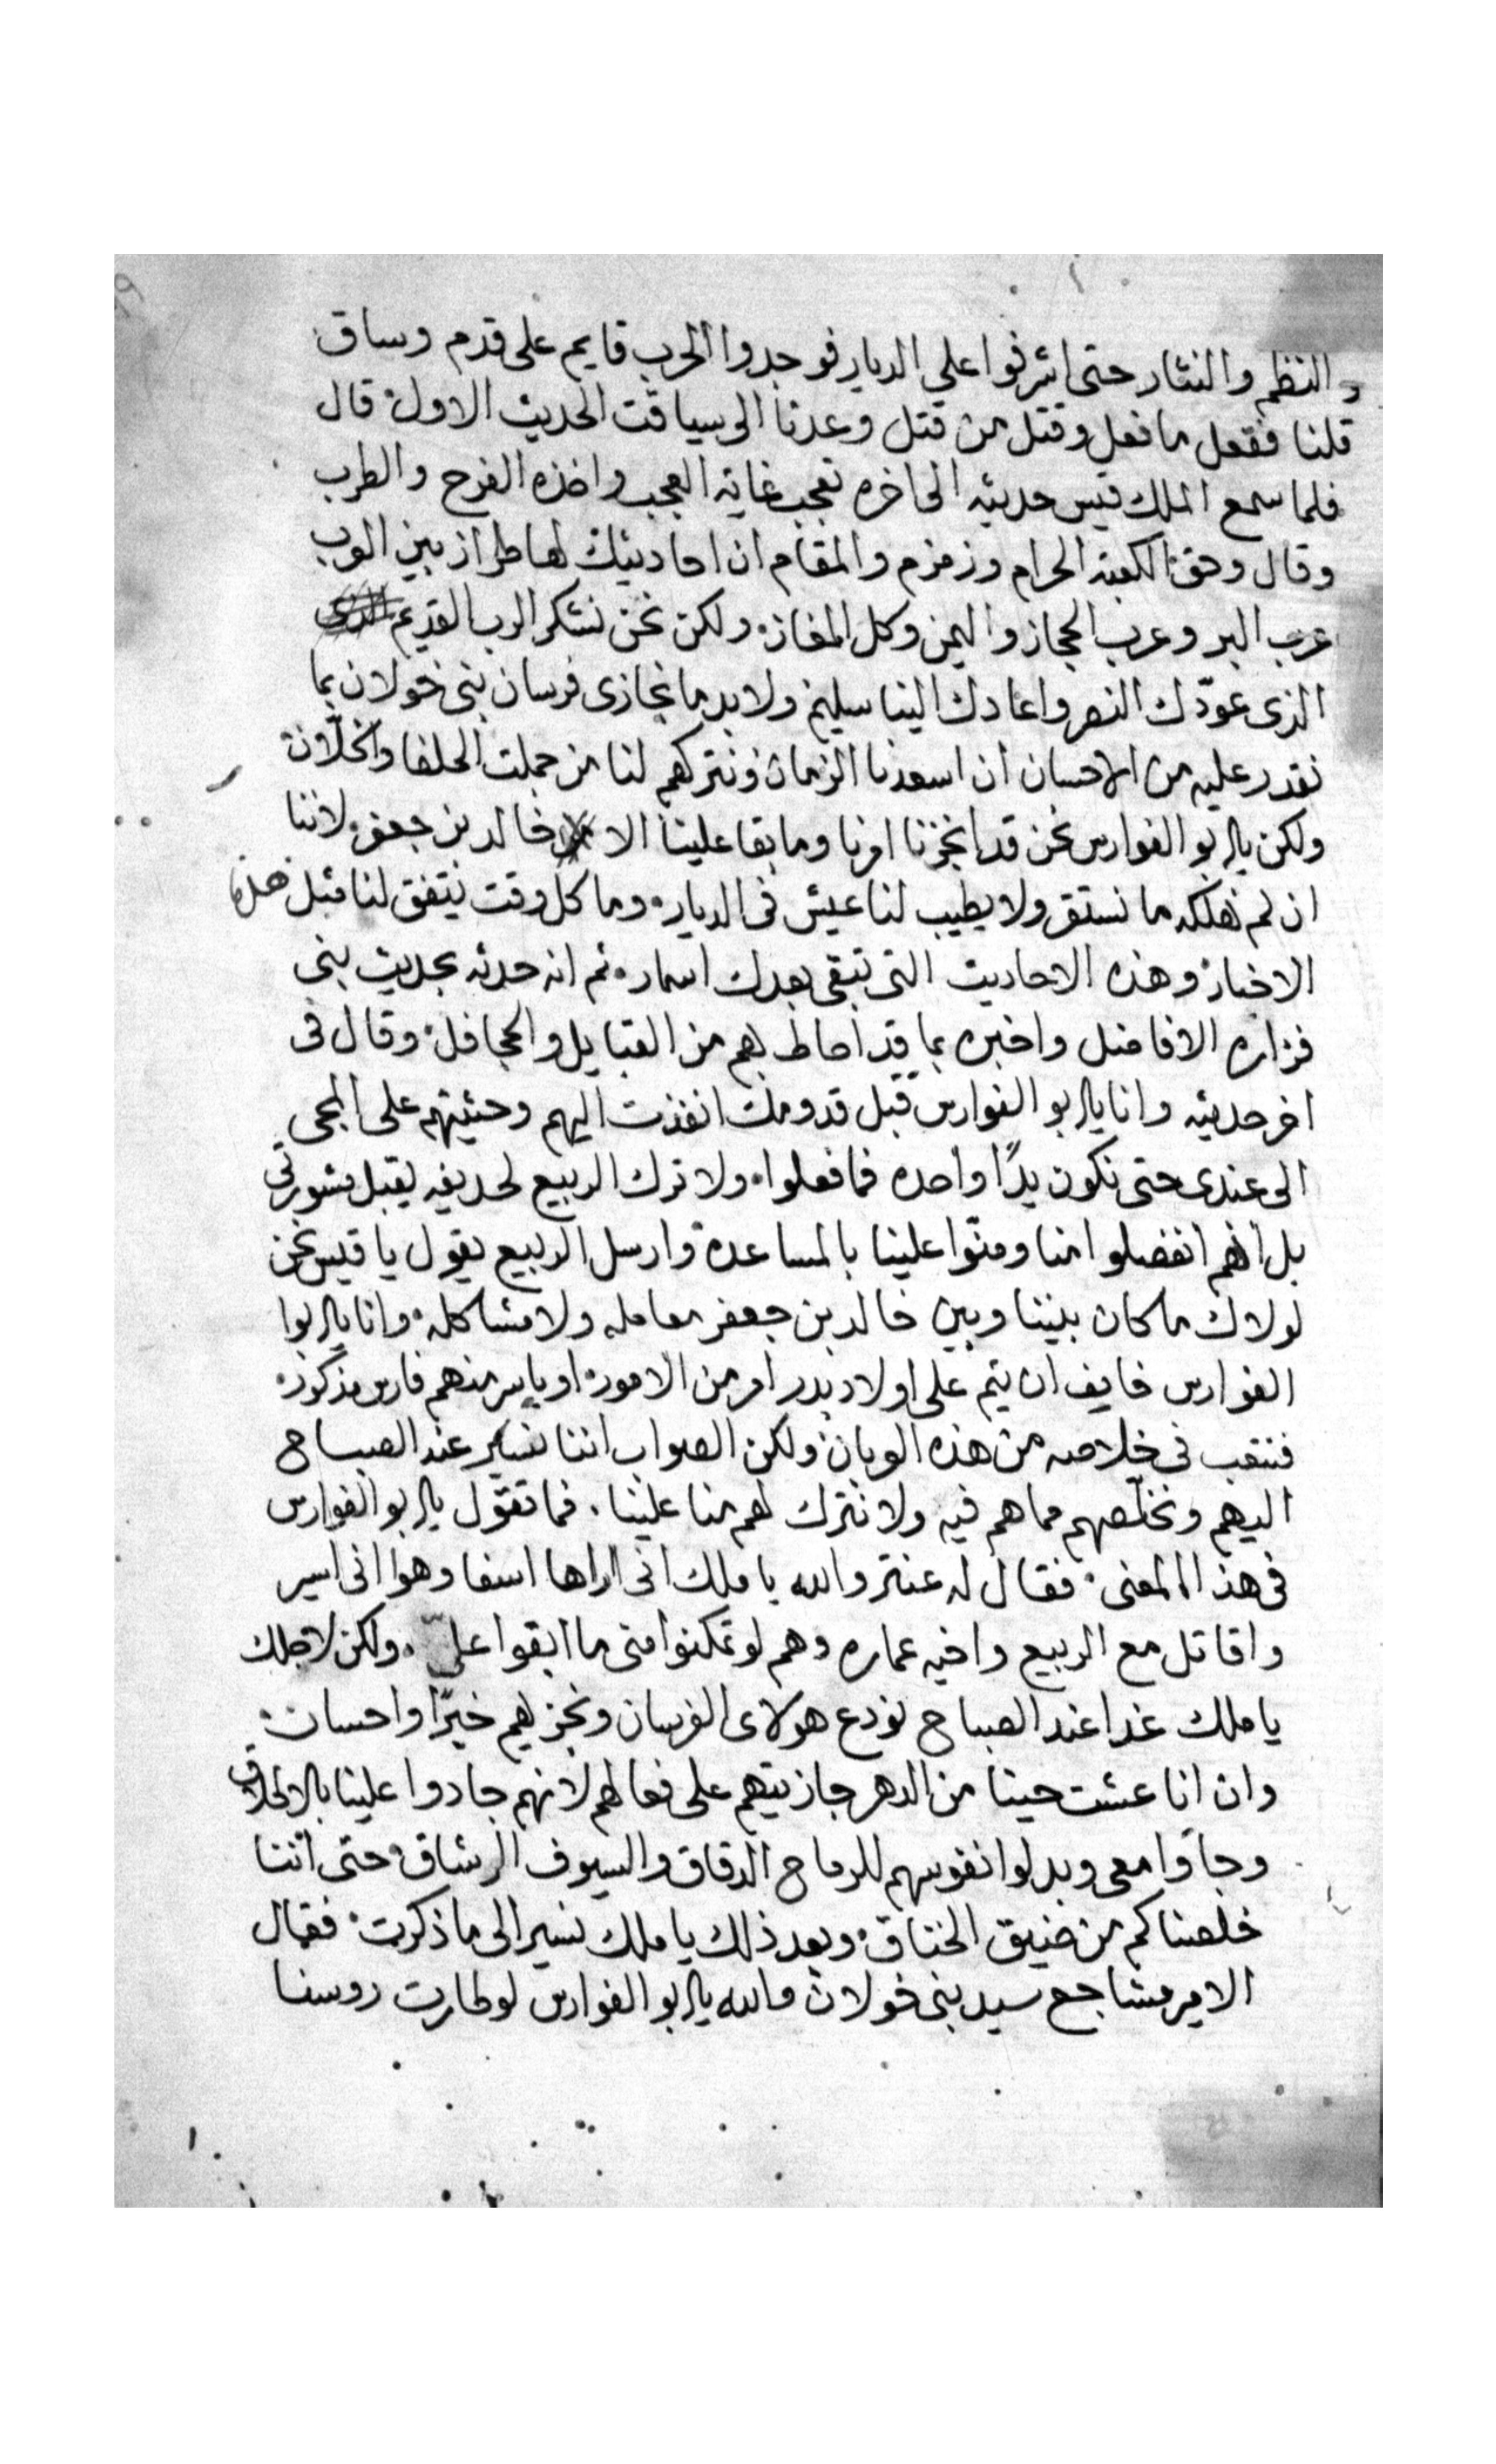 والنظم والنثار حتى اشرفوا على الديار فوجدوا الحرب قايم على قدم وساق
قلنا ففعل ما فعل وقتل من قتل وعدنا الى سياقت الحديث الاول قال
فلما سمع الملك قيس حديثه الى اخره تعجب غاية العجب واخذه الفرح والطرب
وقال وحق الكعبة الحرام وزمزم والمقام ان احاديثك لها طراز بين العرب
عرب البر وعرب الحجاز واليمن وكل المفاز ولكن نحن نشكر الرب القديم
الذى عوّدك النصر واعادك الينا سليم ولا بد ما نجازى فرسان بنى خولان بما
نقدر عليه من الاحسان ان اسعدنا الزمان ونتركهم لنا من جملت الحلفا والخلّان
ولكن يابو الفوارس نحن قد انجزنا امرنا وما بقا علينا الا خالد بن جعفر لاننا
ان لم نهلكه ما نستقر ولا يطيب لنا عيش فى الديار وما كل وقت يتفق لنا مثل هذه
الاخبار وهذه الاحاديث التى تبقى بعدك اسمار ثم انه حدثه بحديث بنى
فزاره الافاضل واخبره بما قد احاط بهم من القبايل والجحافل وقال فى
اخر حديثه وانا يابو الفوارس قبل قدومك انفذت اليهم وحثيتهم على المجى
الى عندى حتى نكون يدًا واحده فما فعلوا ولا ترك الربيع لحديفه يقبل مشورتى
بل انهم انفصلوا منا ومنّوا علينا بالمساعدة وارسل الربيع يقول يا قيس نحن
لولاك ما كان بيننا وبين خالد بن جعفر معامله ولا مشاكله وانا يابوا
الفوارس خايف ان يتم على اولاد بدر امر من الامور او ياسر منهم فارس مذكور
فنتعب فى خلاصه من هذه العربان ولكن الصواب اننا نسير عند الصباح
اليهم ونخلّصهم مما هم فيه ولا نترك لهم منا علينا فما تقول يابو الفوارس
فى هذا المعنى فقال له عنتر والله يا ملك انى اراها اسفا وهوا انى اسير
واقاتل مع الربيع واخيه عماره وهم لو تمكنوا منى ما ابقوا علىّ ولكن لاجلك
يا ملك غدا عند الصباح نودع هولاى الفرسان ونجزيهم خيرًا واحسان
وان انا عشت حينا من الدهر جازيتهم على فعالهم لانهم جادوا علينا بالاطلاق
وجاوا معى وبدلوا نفوسهم للرماح الدقاق والسيوف الرشاق حتى اننا
خلصناكم من ضيق الخناق وبعد ذلك يا ملك نسير الى ما ذكرت فقال
الامير مشاجع سيد بنى خولان والله يابو الفوارس لو طارت روسنا